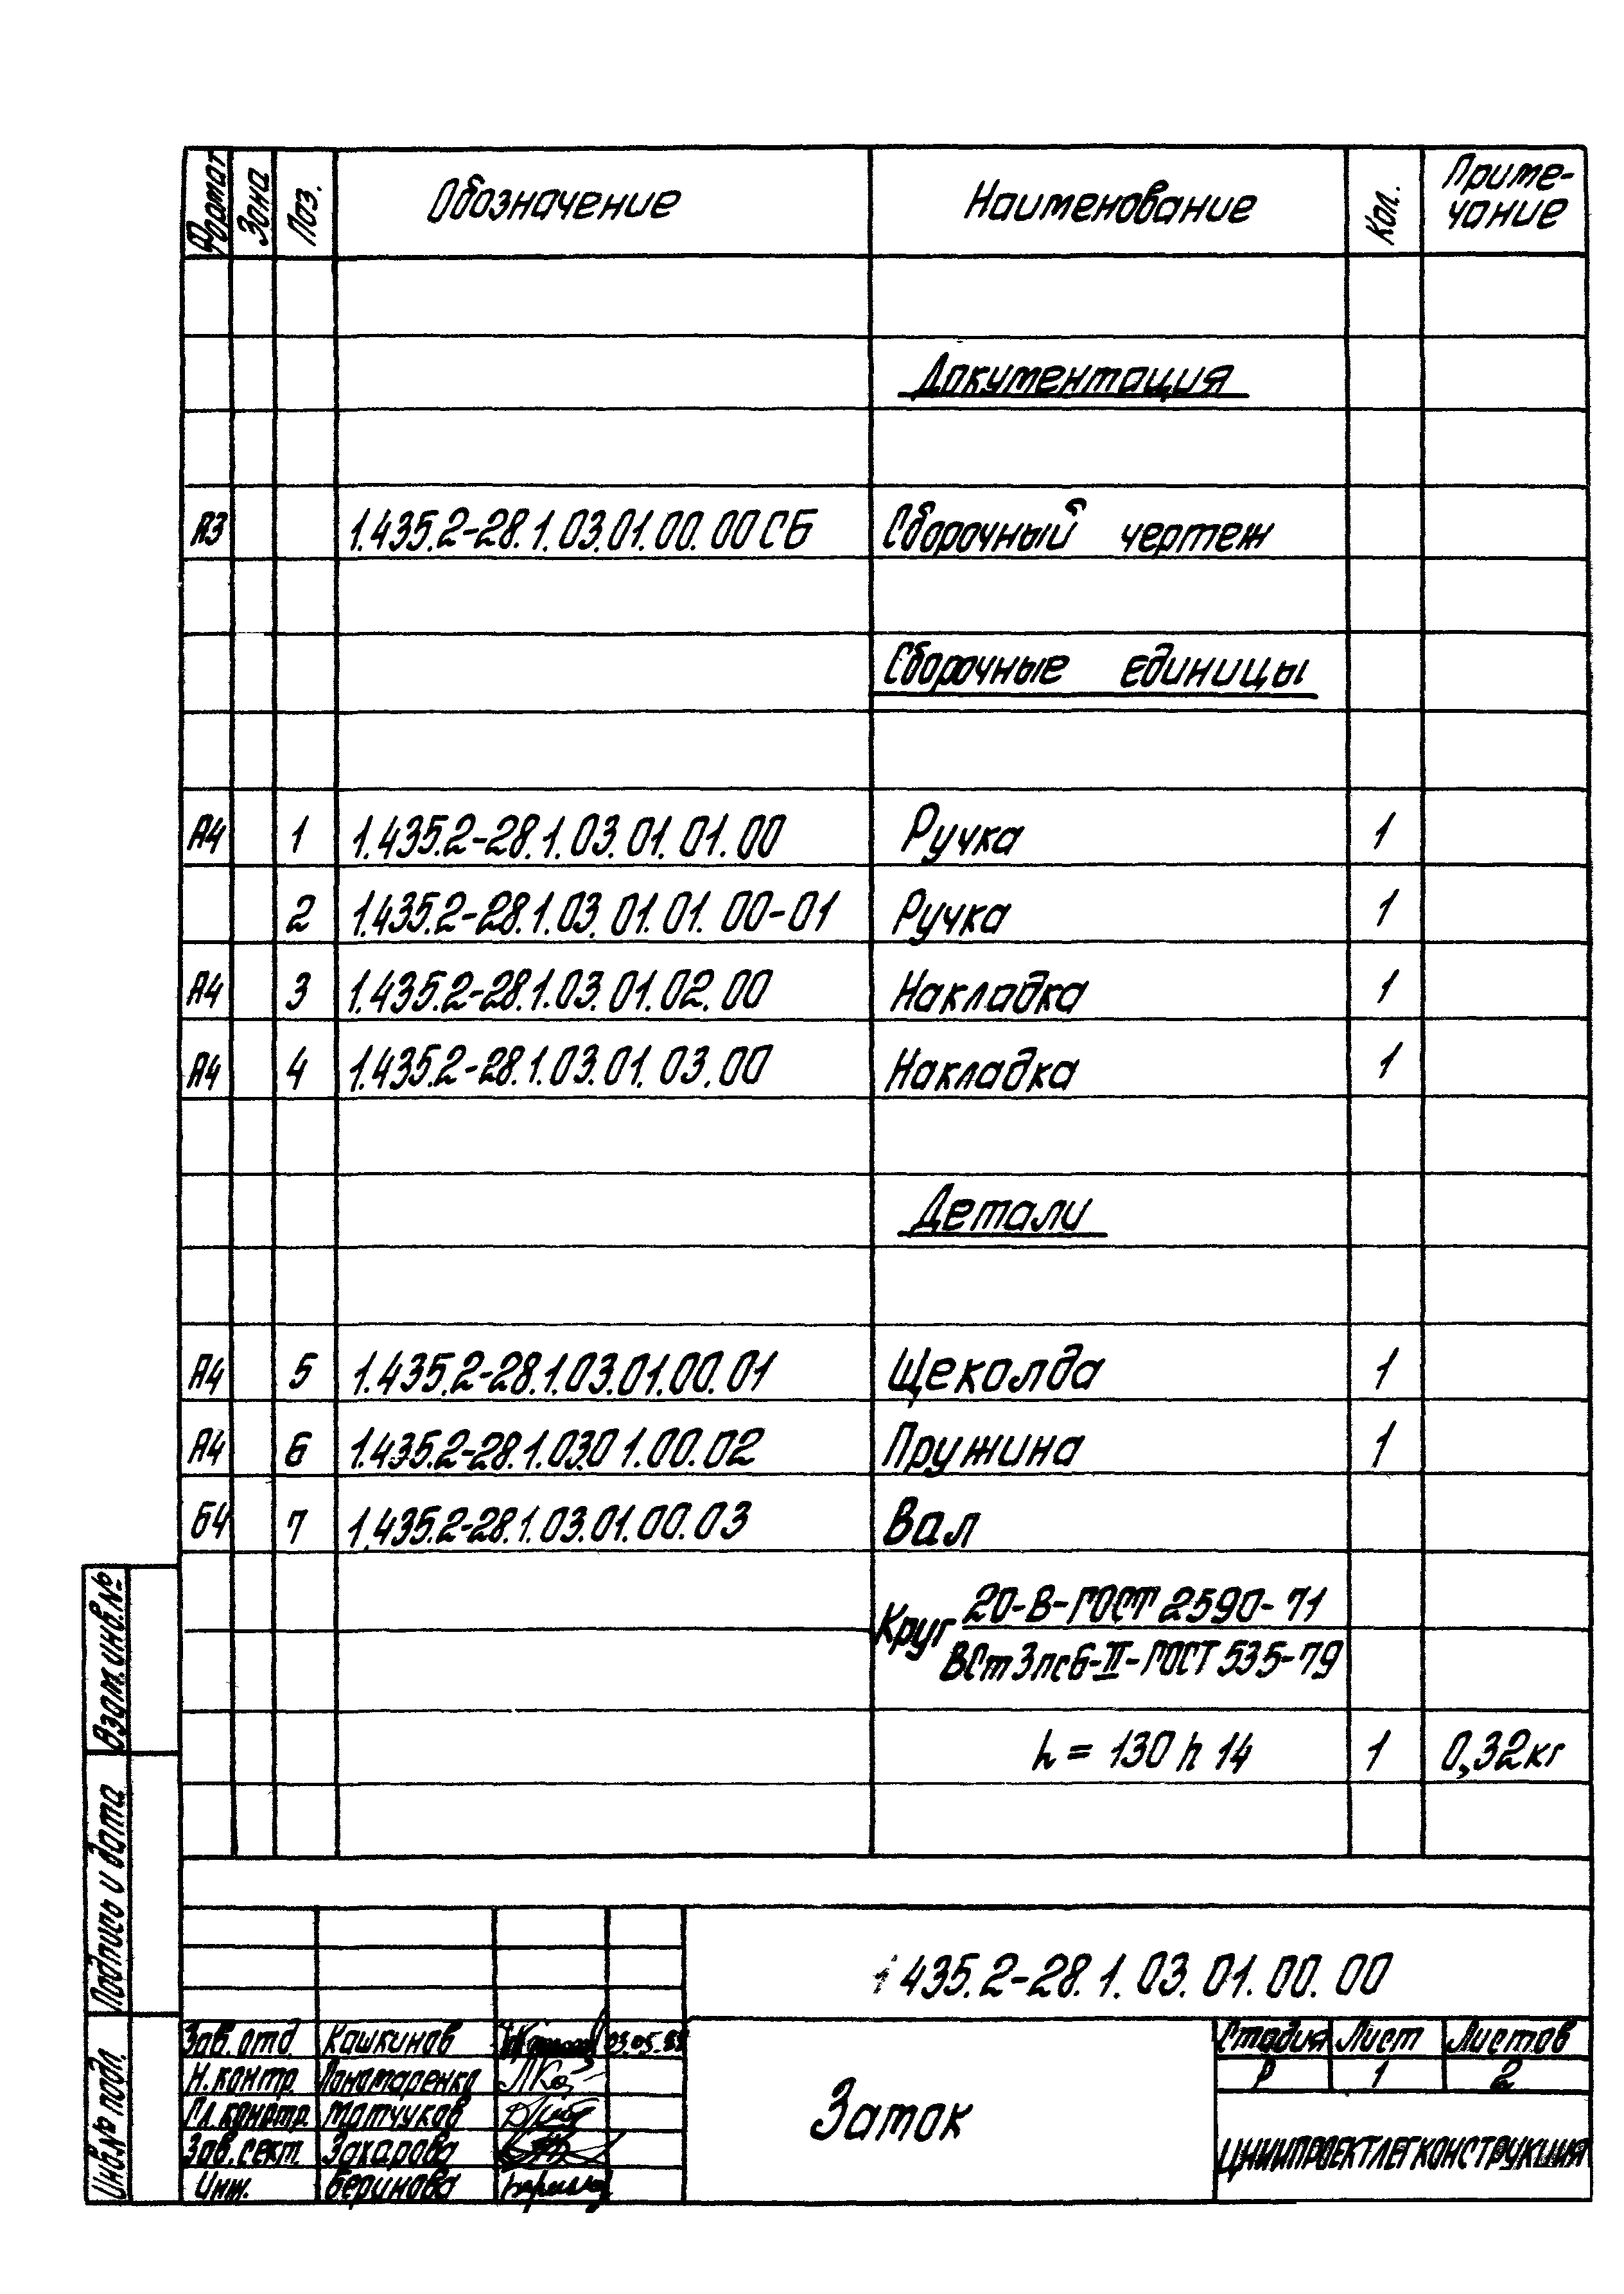 Формат Зона Поз. Обозначение Наименование Кол. Приме-
чание
Документация
А3 1.435.2-28.1.03.01.00.00СБ Сборочный чертеж
Сборочные единицы
А4 1 1.435.2-28.1.03.01.01.00 Ручка 1
2 1.435.2-28.1.03.01.01.00-01 Ручка 1
А4 3 1.435.2-28.1.03.01.02.00 Накладка 1
А4 4 1.435.2-28.1.03.01.03.00 Накладка 1
Детали
А4 5 1.435.2-28.1.03.01.00.01 Щеколда 1
А4 6 1.435.2-28.1.03.01.00.02 Пружина 1
Б4 7 1.435.2-28.1.03.01.00.03 Вал
Круг 20-В-ГОСТ 2590-71
ВСт3пс6-II-ГОСТ 535-79
h = 130 h 14 1 0,32кг
Взам.инв.№
Подпись и дата
Инв.№ подл.
1 435.2-28.1.03.01.00.00
Зав.отд. Кашкинов 03.05.
Н.контр. Пономаренко
Гл.констр. Матчуков
Зав.сект. Захарова
Инж. Беринова
Заток
Стадия Лист Листов
Р 1 2
ЦНИИПРОЕКТЛЕГКОНСТРУКЦИЯ